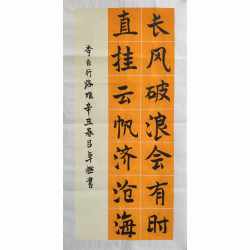 长风破浪会有时
直挂云帆济沧海
李白行路难辛丑春吕卓